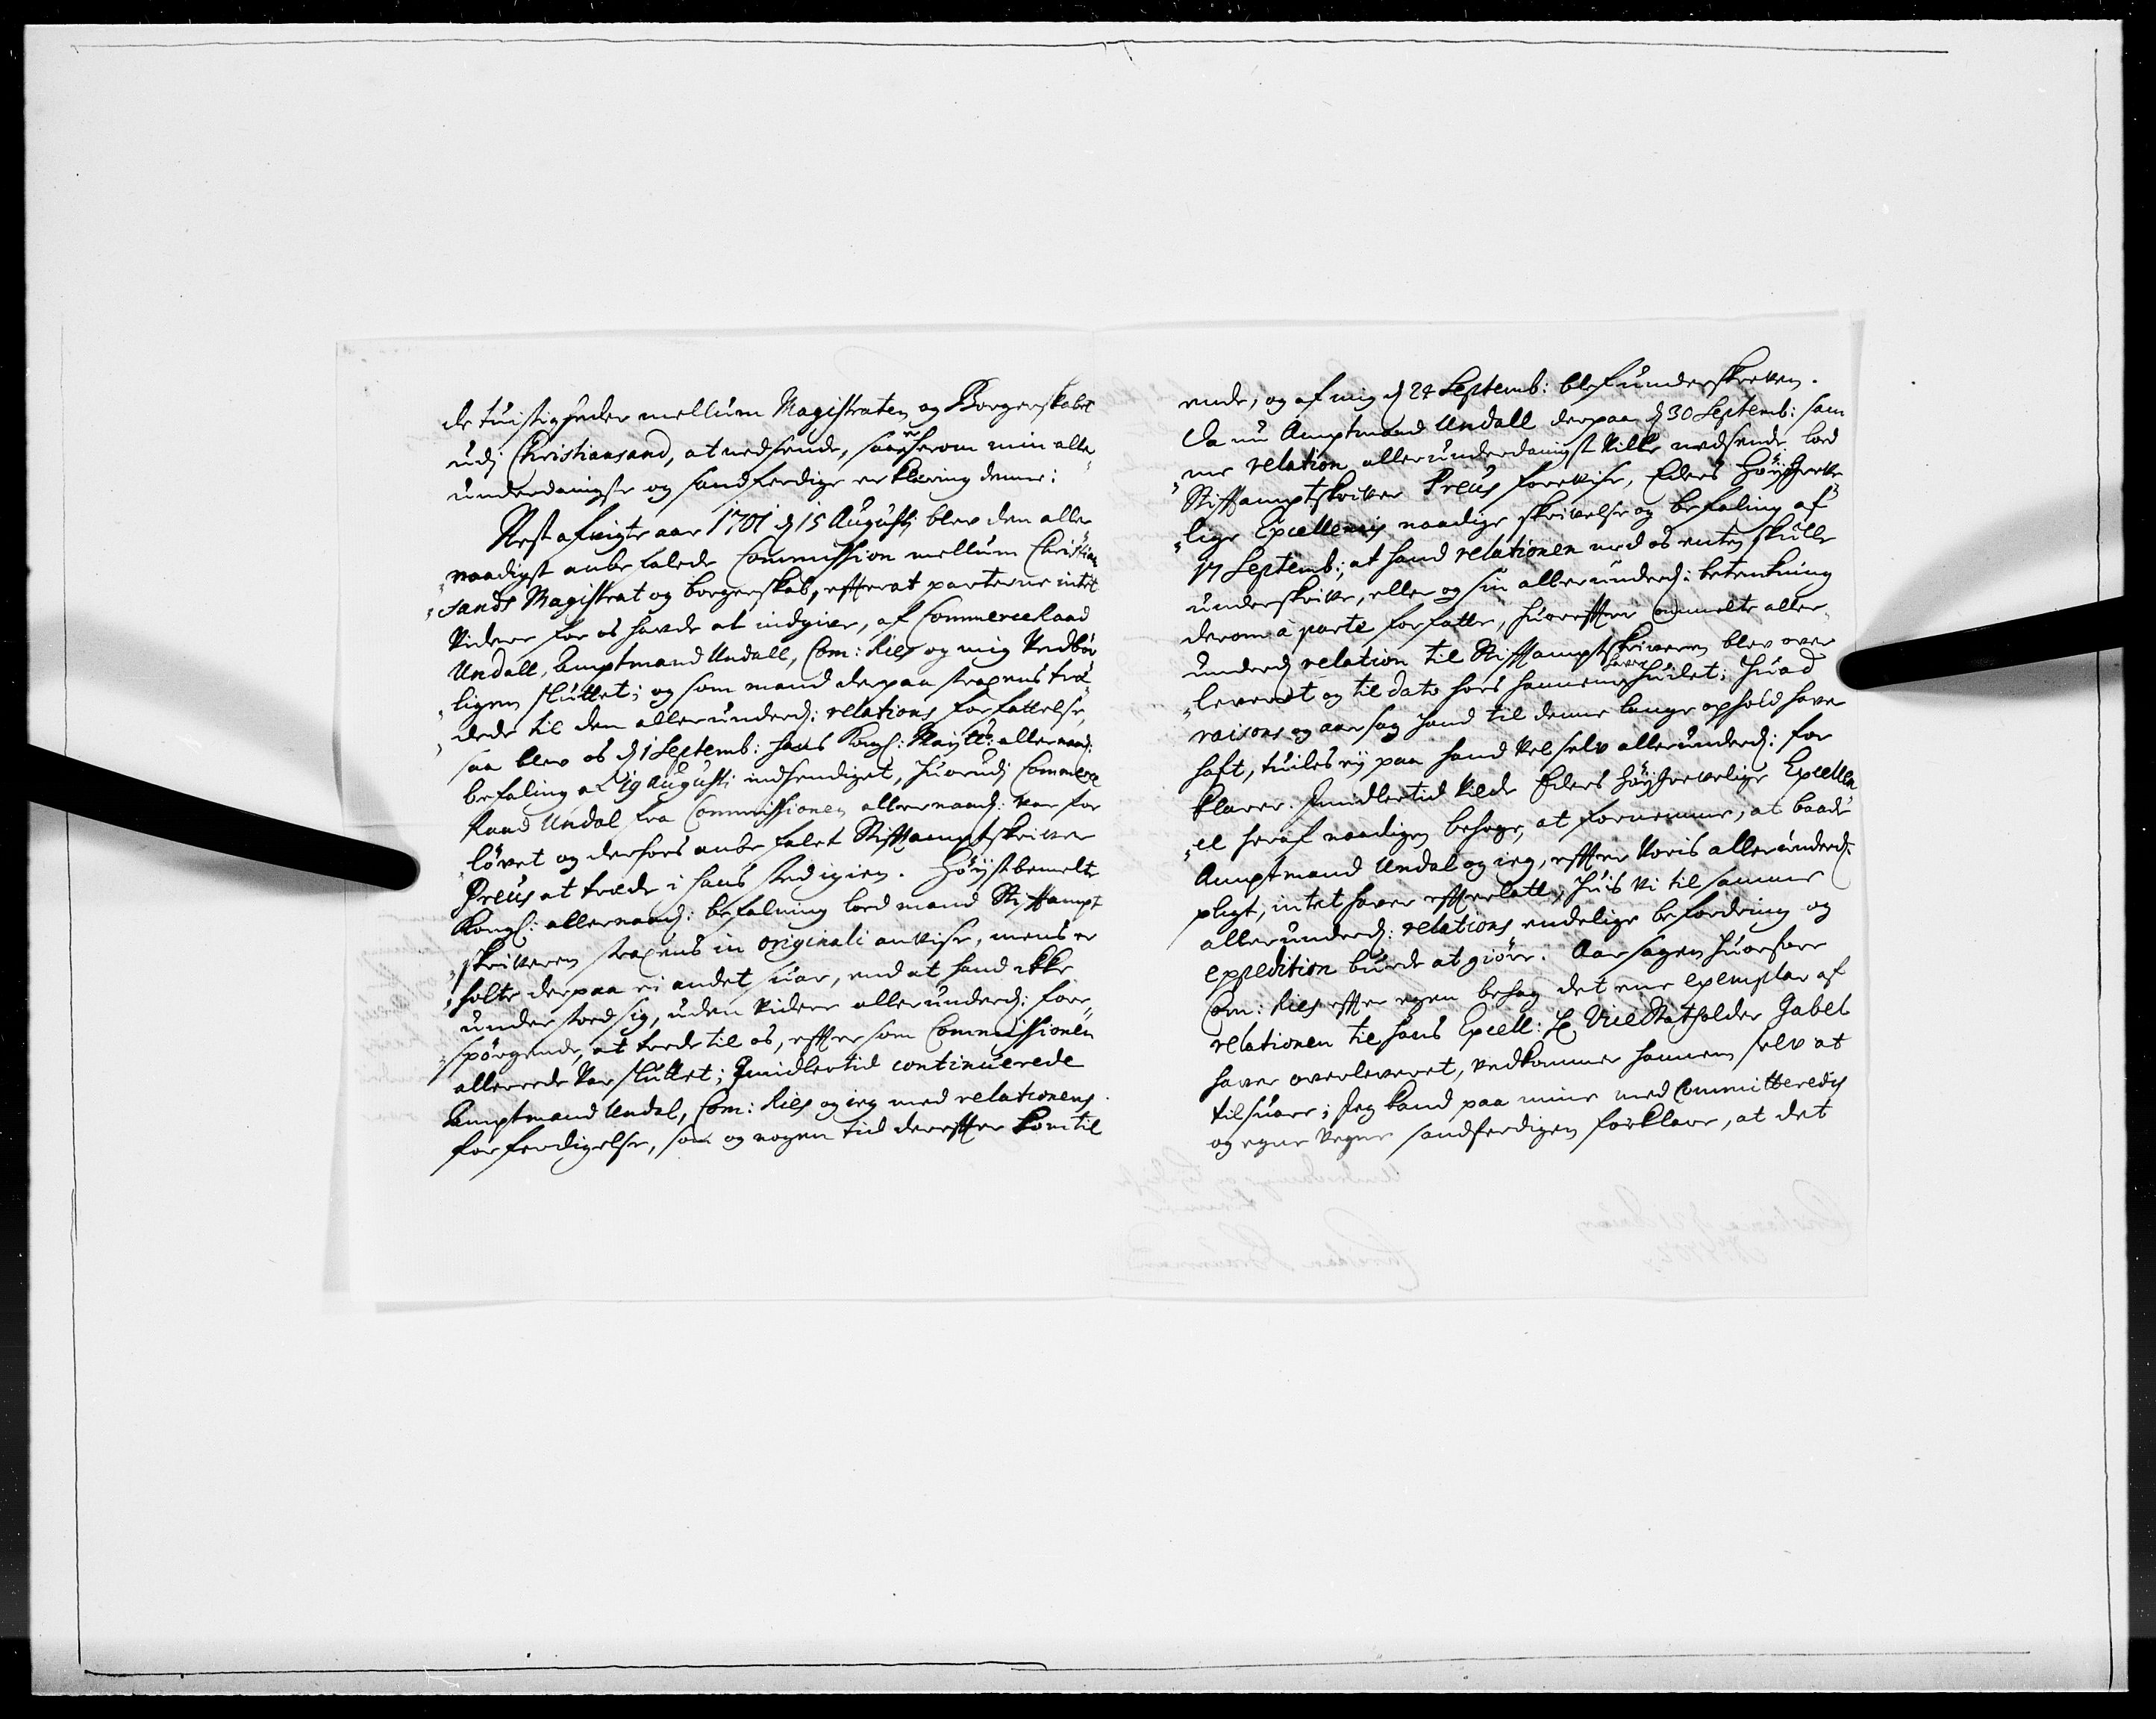 de tuistigheder mellum Magistraten og Borgerskabet
udj Christiansand, at nedsende, saa er herom min alle¬
underdanigste og sandferdige erklæring denne:
Nest afvigte aar 1701 d 15 Augustj blev den aller
naadigst anbefalede Commission mellum Christian
sands Magistrat og borgerskab, effterat parterne intet
videre for os hafde at indgive, af CommerceRaad
Undall, Amptmand Undall, Com: Ries og mig vedbør
ligen sluttet; og som mand derpaa straxens træ
dede til den allerunderd: relations forfattelse,
saa blev os d 1 Septemb: hans Kongl: Mayts: allernaad:
befaling af 19 Augustj indhendiget, huorudj Commerce
Raad Undal fra Commissionen allernaad: var for
løvet og derfore anbefalet Stifftamptskriver
Preus at træde i hans sted igien. Høystbemelte
Kongl: allernaad: befalning lod mand Stifftampt
skriveren straxens in originali anvise, mens er
holte derpaa ei andet suar, end at hand ikke
understoed sig, uden videre allerunderd: fore
spørgende, at træde til os, effter som Commissionen
allerrede var sluttet; Imidlertid continuerede
Amptmand Undal, Com: Ries og ieg med relationens
forferdigelse, som og nogen tid dereffter kom til
ende, og af mig d 24 Septemb: blef underskreven.
Da nu Amptmand Undall derpaa d 30 Septemb: sam
me relation allerunderdanigst vilde nedsende, lod
Stifftamptskriver Preus forevise, Eders Høy Greve
lige Excellences naadige skrivelse og befaling af
17 Septemb:, at hand relationen med os enten skulle
underskrive, eller og sin allerunderd: betenkning
derom à parte forfatte, huoreffter ommelte aller
underd relation til Stifftamptskriveren blev over
leveret og til dato hos hannem haver huilet; Huad
raisons og aarsag hand til denne lange ophold haver
hafft, tuiles ey paa hand vel selv allerunderd: for
klarer. Imidlertid vilde Eders Høygrevelige Excellen
ce heraf naadigen behage, at fornemme, at baade
Amptmand Undal og ieg, effter voris allerunderd:
pligt, intet haver effterlatt, huis vi til samme
allerunderd: relations endelige befordring og
expedition burde at giøre. Aarsagen huorfore
Com: Ries effter egen behag det ene exemplar af
relationen til hans Excell: H Vice Statholder Gabel
haver overleveret, vedkommer hannem selv at
tilsuare; Jeg kand paa mine med Committeredes
og egne vegne sandferdigen forklare, at det